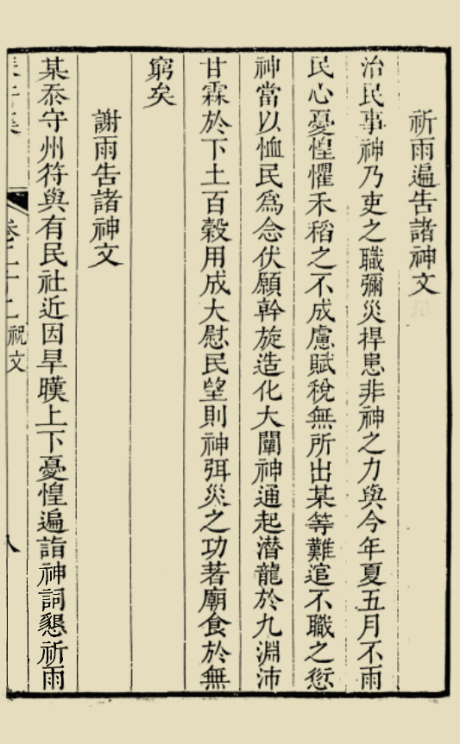 祈雨遍告諸神文
治民事神乃吏之職彌災捍患非神之力與今年夏五月不雨
民心憂惶懼禾稻之不成慮賦稅無所出某等難逭不職之愆
神當以恤民為念伏願幹旋造化大闡神通起潛龍於九淵沛
甘霖於下土百穀用成大慰民望則神弭災之功著廟食於無
窮矣
謝雨告諸神文
某忝守州符與有民社近因旱暵上下憂惶遍詣神詞懇祈雨
卷二十二 祝文 八